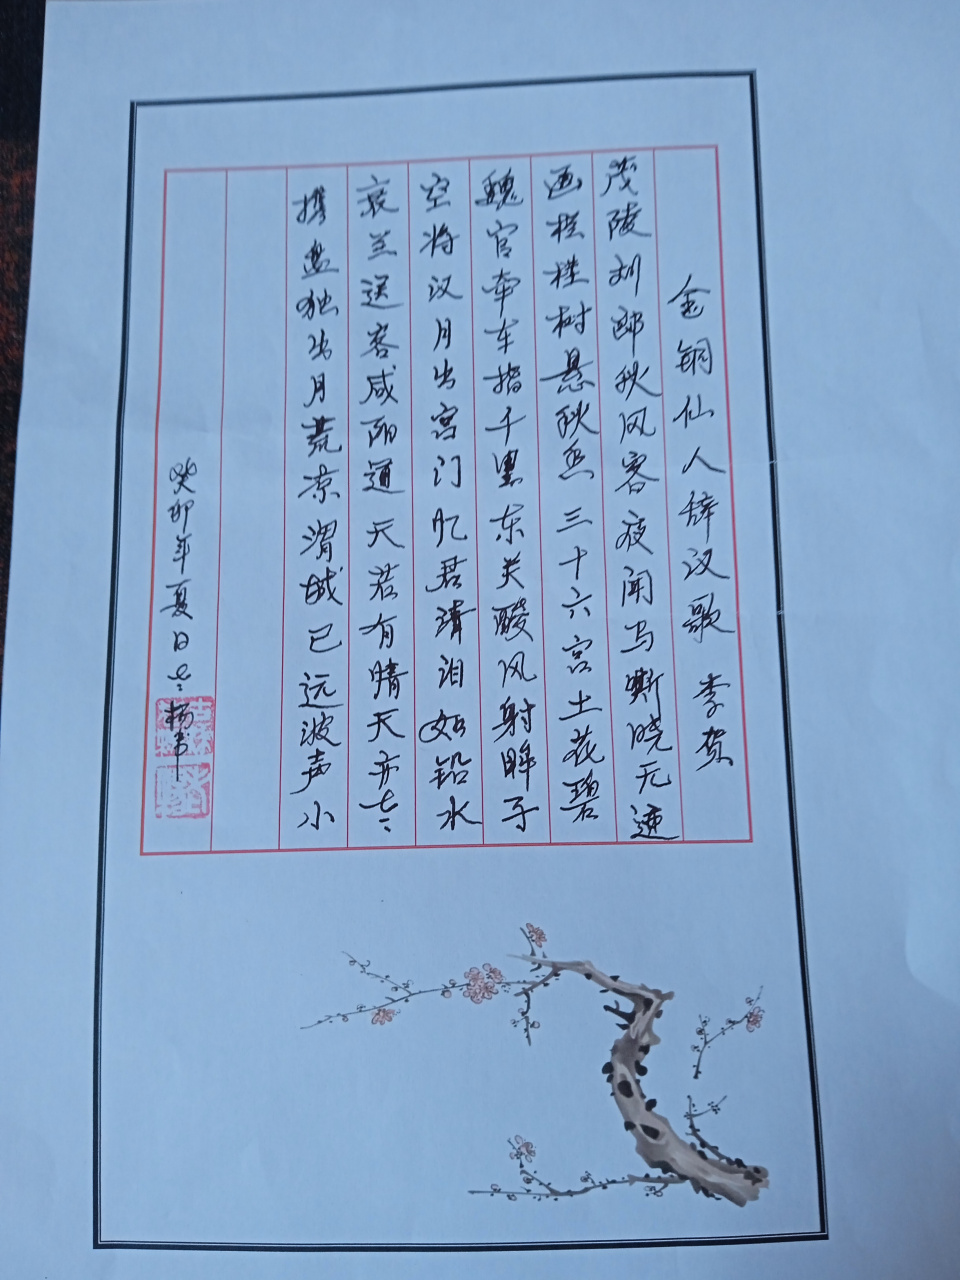 金铜仙人辞汉歌 李贺
茂陵刘郎秋风客夜闻马嘶晓无迹
画栏桂树悬秋香三十六宫土花碧
魏官牵车指千里东关酸风射眸子
空将汉月出宫门忆君清泪如铅水
衰兰送客咸阳道天若有情天亦老
携盘独出月荒凉渭城已远波声小
癸卯年夏日老杨书